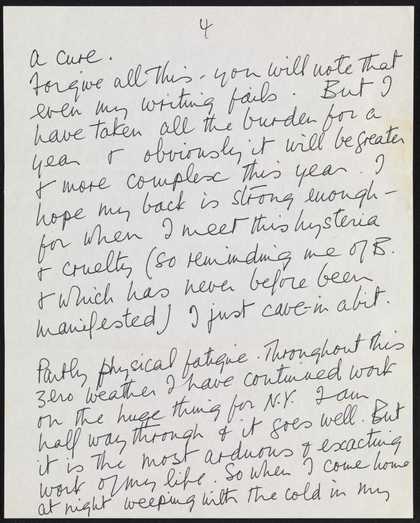 4
a cure.
Forgive all this - you will note that
even my writing fails. But I
have taken all the burden for a
year & obviously it will be greater
& more complex this year. I
hope my back is strong enough -
for when I meet this hysteria
& cruelty (so reminding me of B.
& which has never before been
manifested) I just cave-in a bit.
Partly physical fatigue. Throughout this
zero weather I have continued work
on the huge thing for N.Y. I am
half way through & it goes well. But
it is the most arduous & exacting
work of my life. So when I come home
at night weeping with the cold in my